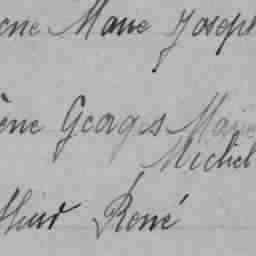 Marie Joseph
ène Georges Marie
Michel
René